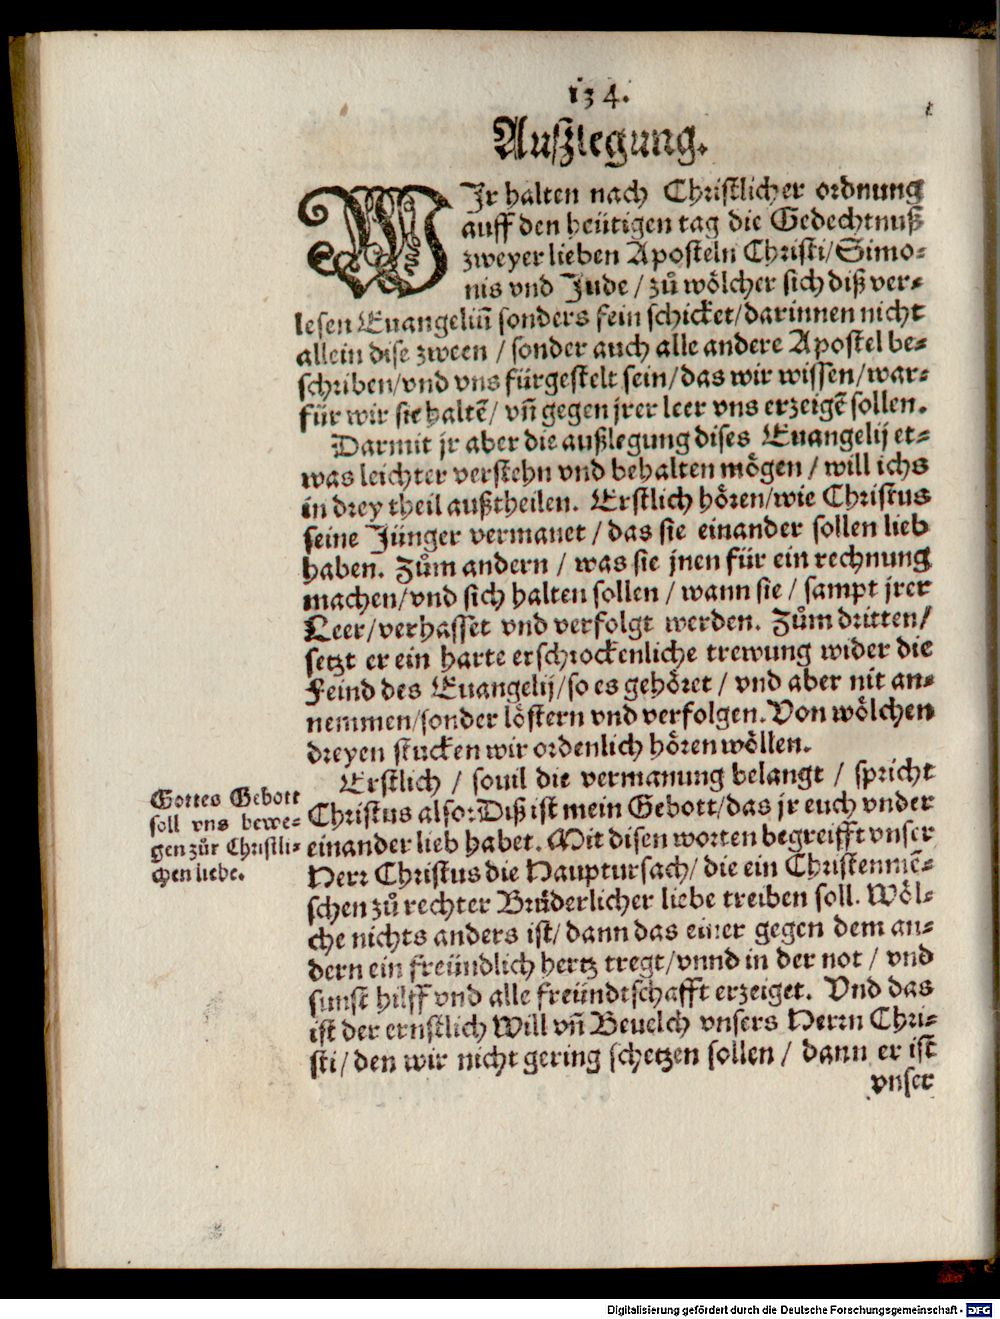 134.
Außlegung.
WJr halten nach Christlicher ordnung
auff den heütigen tag die Gedechtnuß
zweyer lieben Aposteln Christi/Simo⸗
nis vnd Jude / zů wölcher sich diß ver⸗
lesen Euangeliū sonders fein schicket/darinnen nicht
allein dise zween / sonder auch alle andere Apostel be⸗
schriben/vnd vns fürgestelt sein/das wir wissen/war⸗
für wir sie haltē/ vñ gegen jrer leer vns erzeigē sollen.
Darmit jr aber die außlegung dises Euangelij et⸗
was leichter verstehn vnd behalten mögen / will ichs
in drey theil außtheilen. Erstlich hören/wie Christus
seine Jünger vermanet / das sie einander sollen lieb
haben. Zům andern / was sie jnen für ein rechnung
machen/vnd sich halten sollen / wann sie / sampt jrer
Leer/verhasset vnd verfolgt werden. Zům dritten/
setzt er ein harte erschrockenliche trewung wider die
Feind des Euangelij/so es gehöret / vnd aber nit an⸗
nemmen/sonder löstern vnd verfolgen. Von wölchen
dreyen stucken wir ordenlich hören wöllen.
Erstlich / souil die vermanung belangt / spricht
Christus also: Diß ist mein Gebott/das jr euch vnder
einander lieb habet. Mit disen worten begreifft vnser
Herr Christus die Hauptursach/ die ein Christenmē⸗
schen zů rechter Brüderlicher liebe treiben soll. Wöl⸗
che nichts anders ist/ dann das einer gegen dem an⸗
dern ein freündlich hertz tregt/vnnd in der not / vnd
sunst hilff vnd alle freündtschafft erzeiget. Vnd das
ist der ernstlich Will vñ Beuelch vnsers Herrn Chri⸗
sti/ den wir nicht gering schetzen sollen / dann er ist
vnser
Gottes Gebott
soll vns bewe⸗
gen zůr Christli⸗
chen liebe.
Digitalisierung gefördert durch die Deutsche Forschungsgemeinschaft - DFG